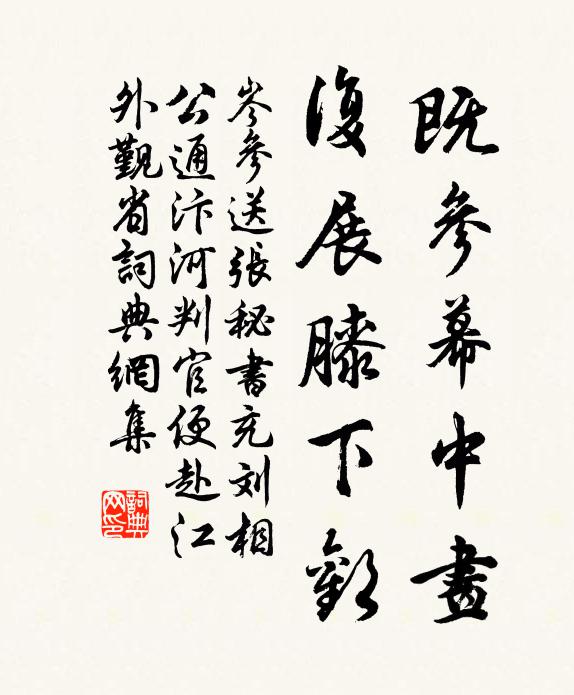 既參幕中畫
復展膝下歡
岑參送張秘書充刘相
公通汴河判官便赴江
外觐省詞典網集
詞典网印